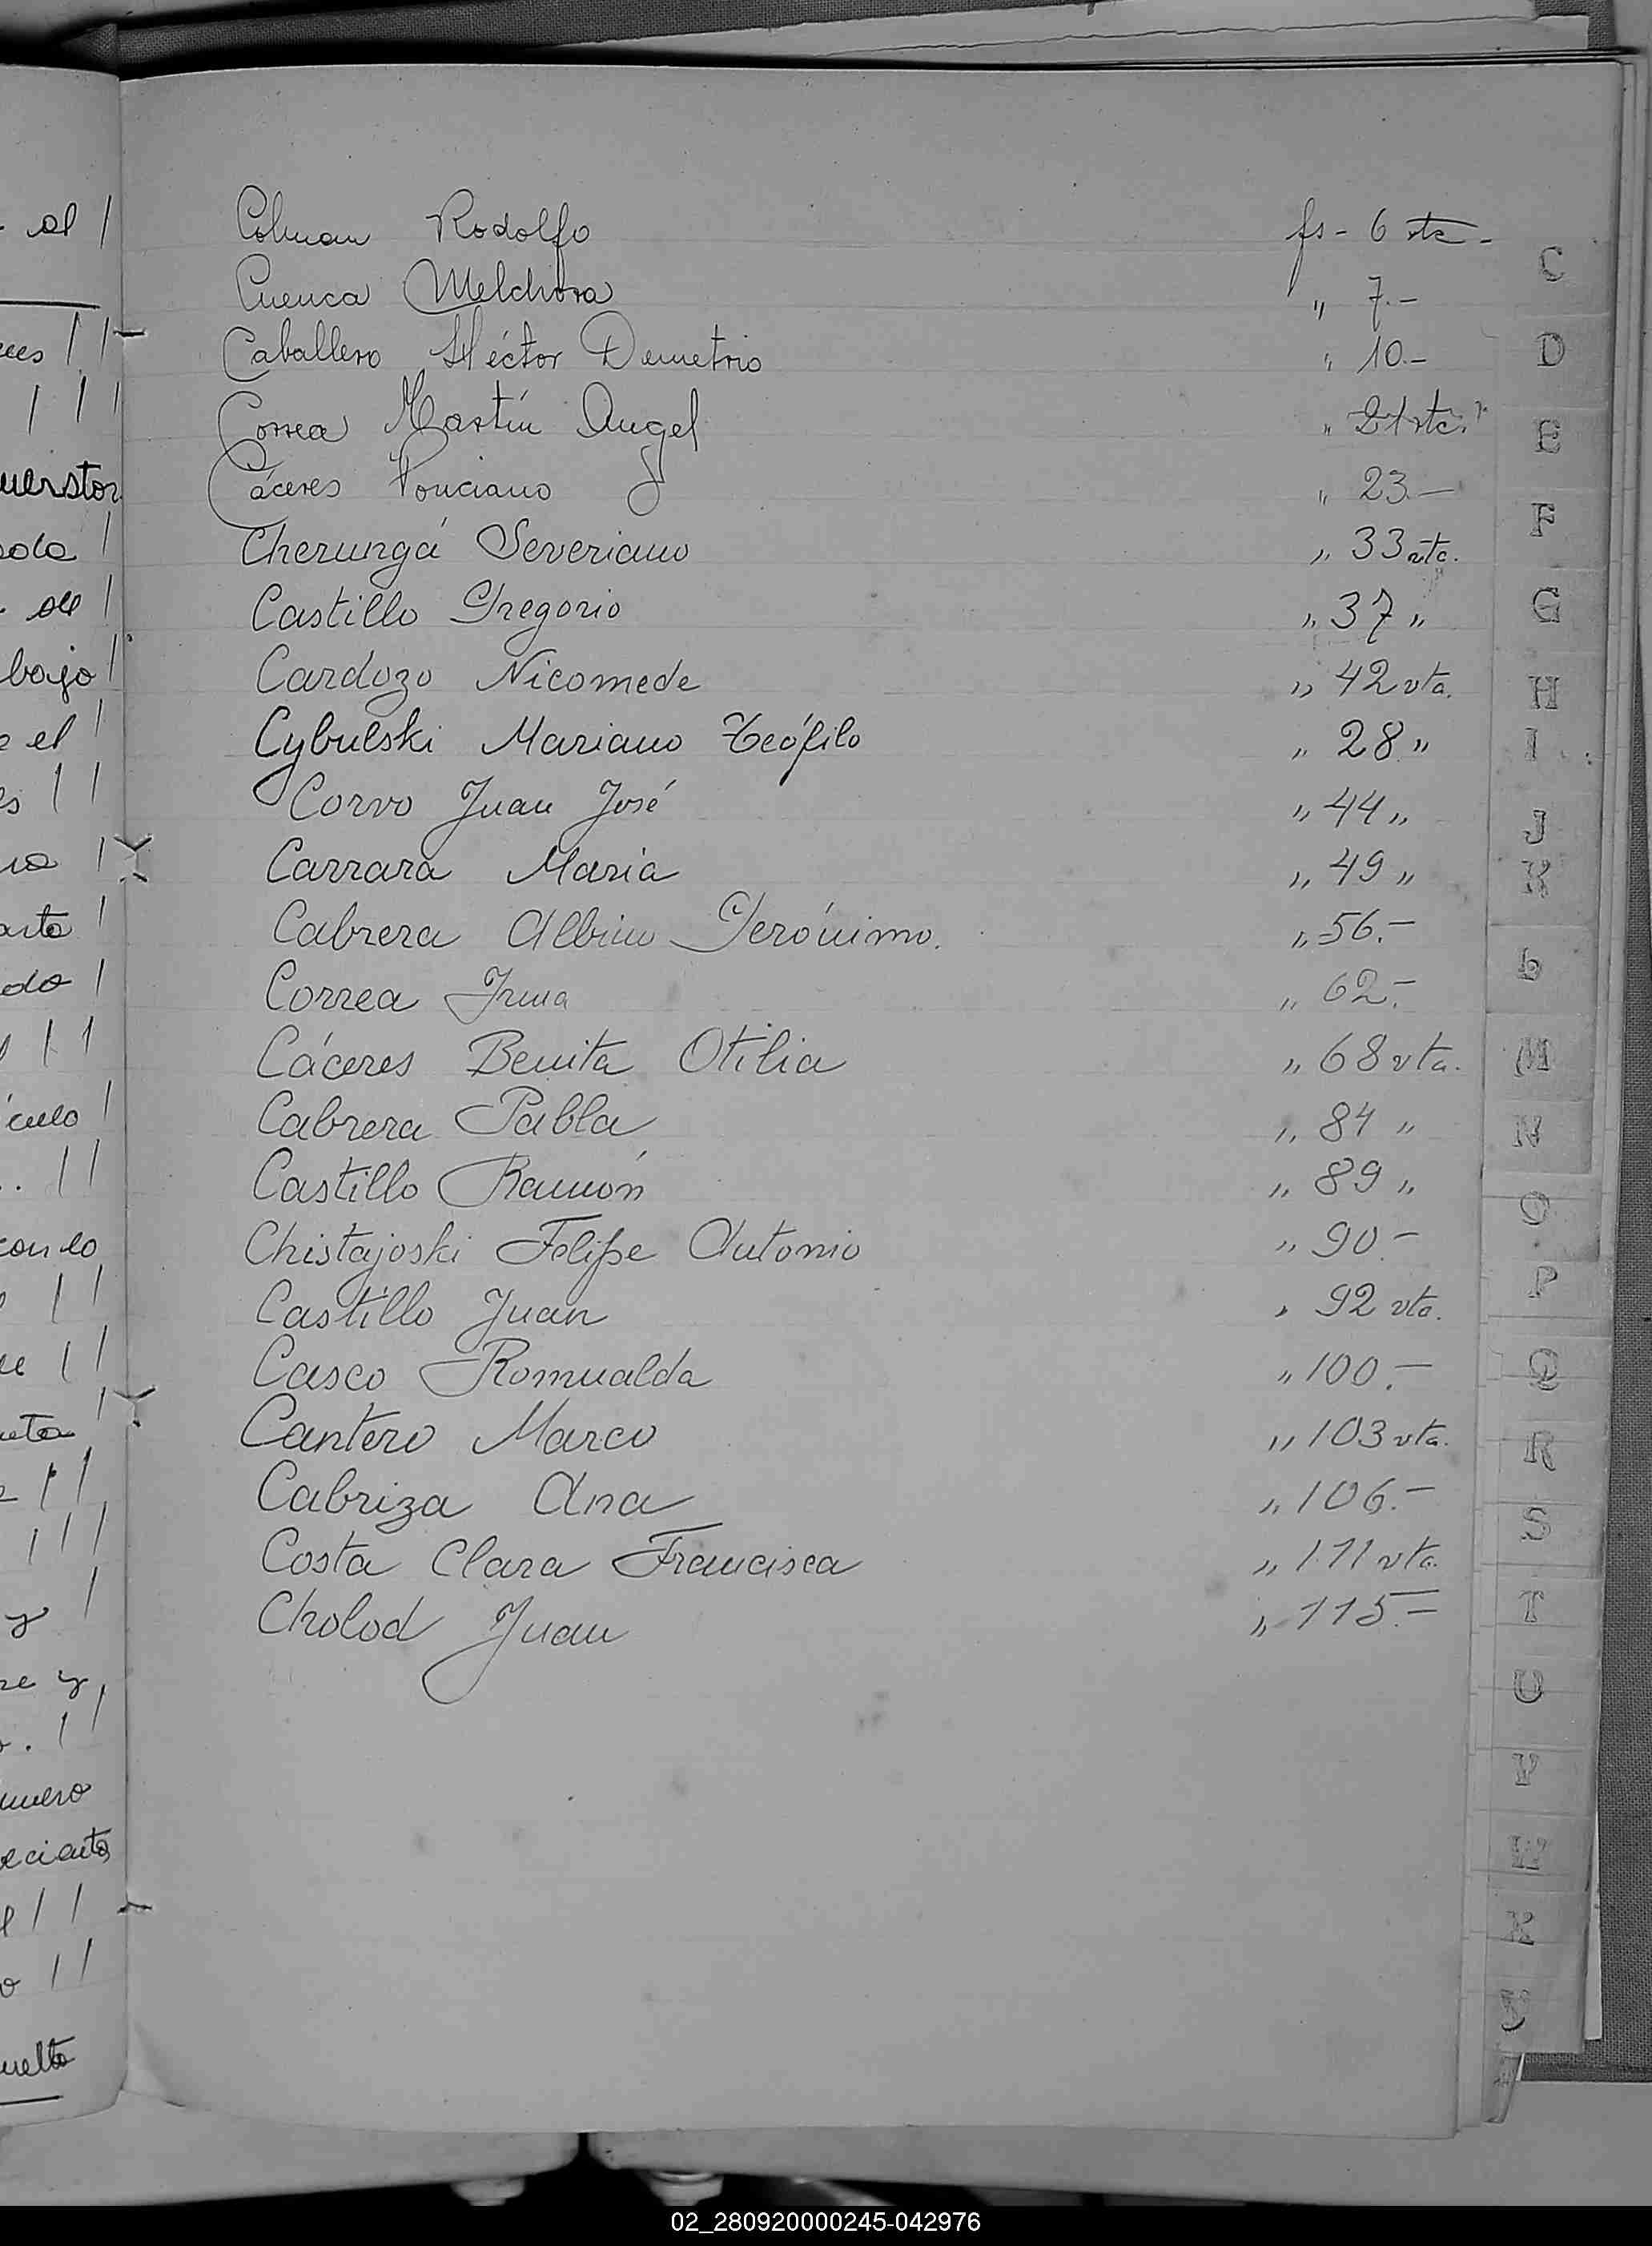 Colman Rodolfo fs- 6 vta-
Cuenca Melchora " 7.-
Caballero Héctor Demetrio " 10.-
Correa Martín Angel " 21 vta.
Cáceres Ponciano " 23.-
Cherungá Severiano " 33 vta.
Castillo Gregorio " 37 "
Cardozo Nicomede " 42 vta.
Cybulski Mariano Teófilo " 28 "
Corvo Juan José " 44 "
Carrara Maria " 49 "
Cabrera Albino Jerónimo. " 56.-
Correa Irma " 62.-
Cáceres Benita Otilia " 68 vta.
Cabrera Pabla " 84 "
Castillo Ramón " 89 "
Chistajoski Felipe Antonio " 90.-
Castillo Juan " 92 vta.
Casco Romualda " 100.-
Cantero Marco " 103 vta.
Cabriza Ana " 106.-
Costa Clara Francisca " 111 vta.
Cholod Juan " 115.-
C
D
E
F
G
H
I
J
K
L
M
N
O
P
Q
R
S
T
U
V
W
X
Y
02_280920000245-042976